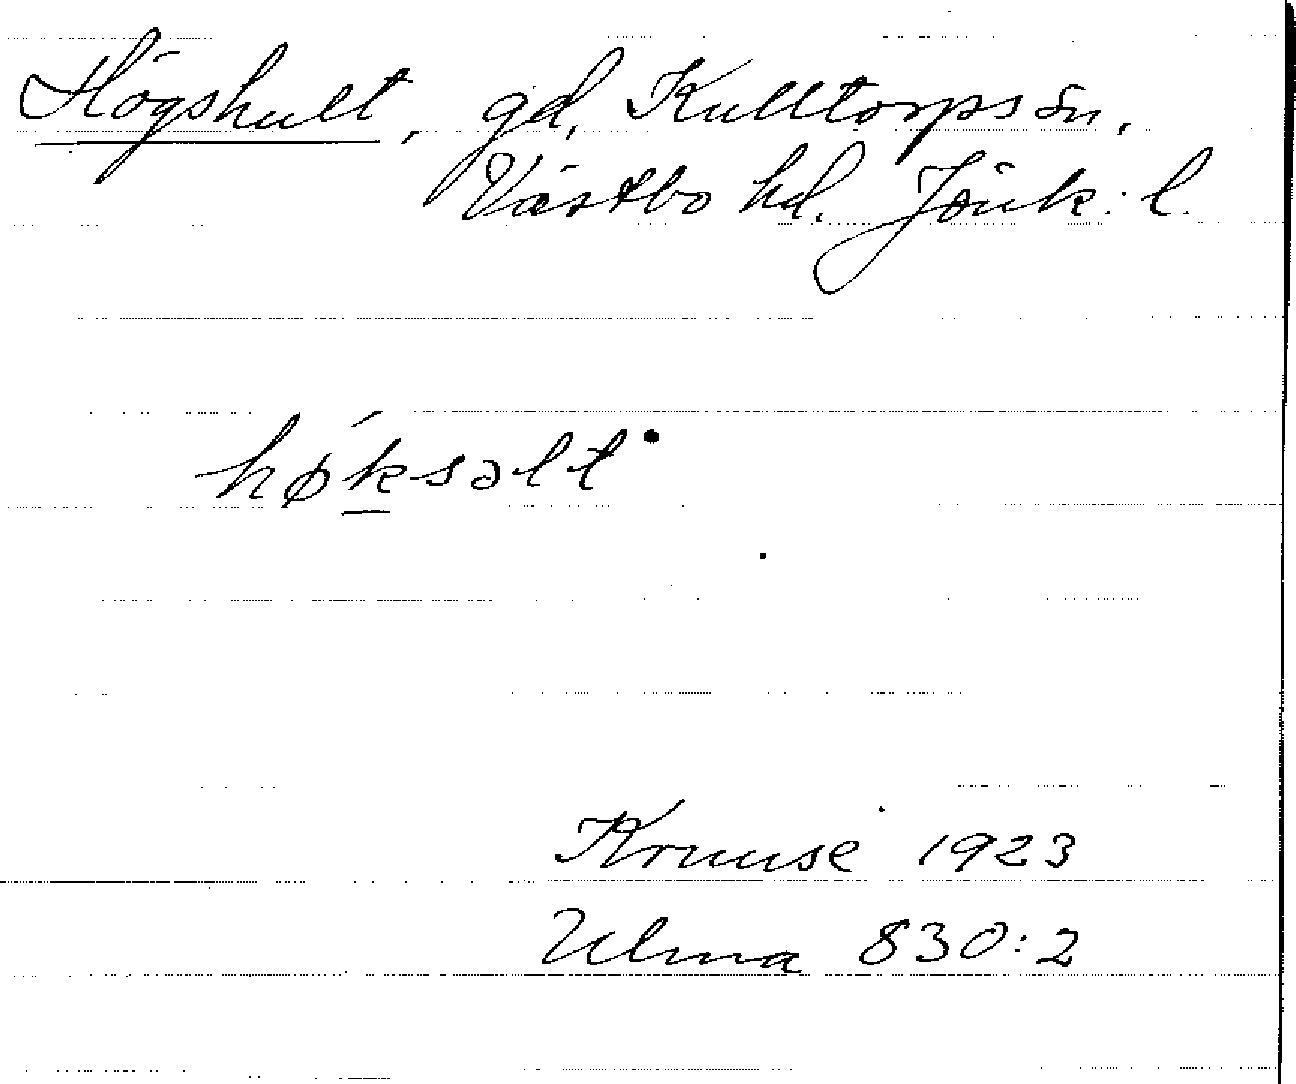 Högshult, gd, Kulltorps sn,
Västbo hd. Jönk. l.
høḱsəlt
Kruuse 1923
Ulma 830:2